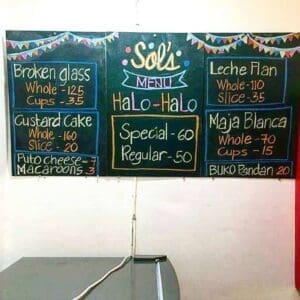 Broken glass
Whole - 125
Cups - 35
Custard Cake
Whole - 160
Slice - 20
Puto cheese - 7
Macaroons - 3
Sol's
MENU
HaLo-HaLo
Special - 60
Regular - 50
Leche Flan
Whole - 110
Slice - 35
Maja Blanca
Whole - 70
Cups - 15
BUKO Pandan 20